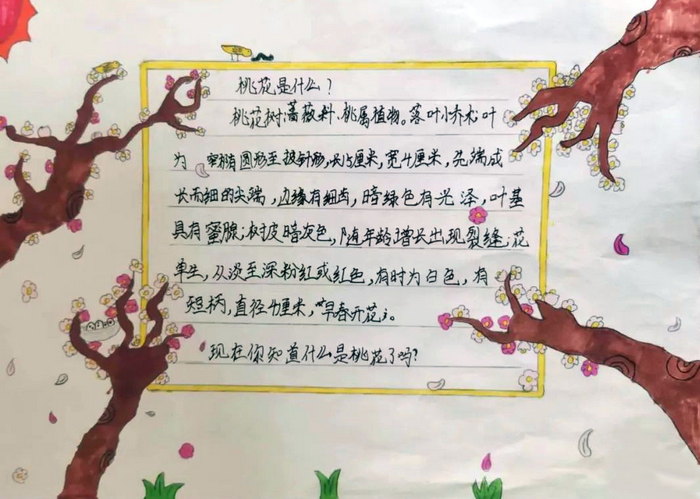 桃花是什么?
桃花树:蔷薇科、桃属植物。落叶小乔木;叶
为 窄椭圆形至披针形,长15厘米,宽4厘米,先端成
长而细的尖端,边缘有细齿,暗绿色有光泽,叶基
具有蜜腺;树皮暗灰色,随年龄增长出现裂缝;花
单生,从淡至深粉红或红色,有时为白色,有
短柄,直径4厘米,早春开花;。
现在你知道什么是桃花了吗?